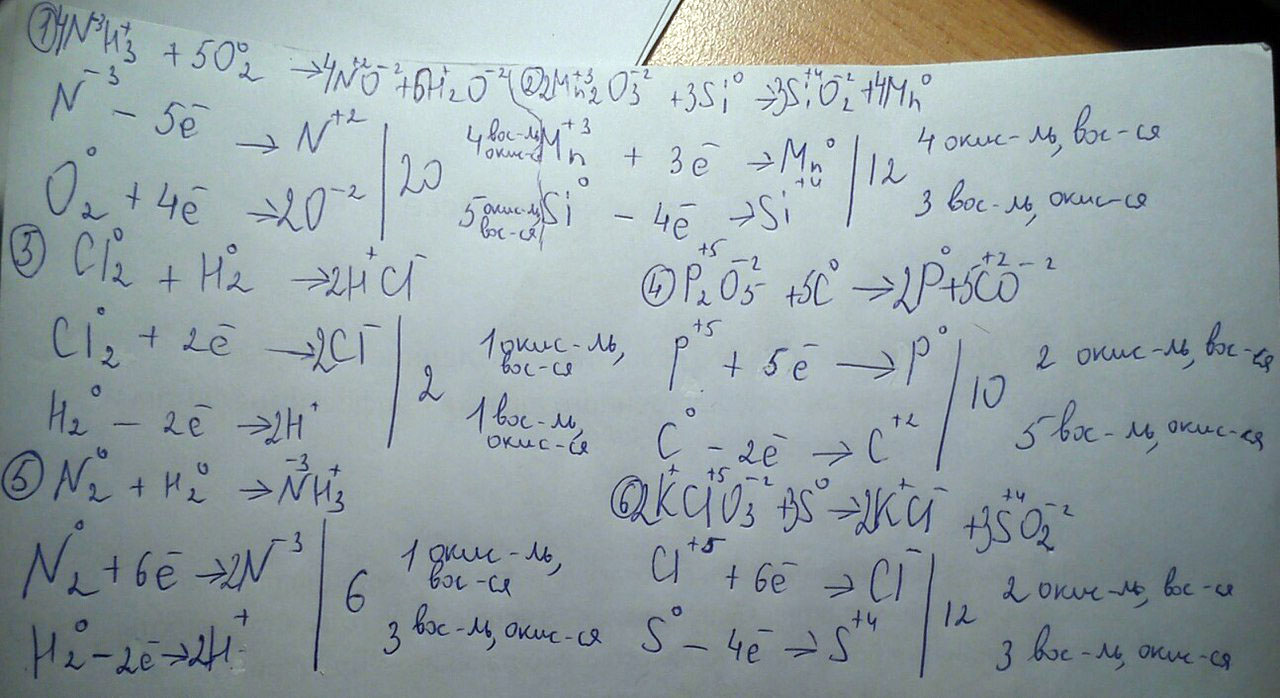 ① 4N⁻³H₃⁺ + 5O₂⁰ → 4N⁺²O⁻² + 6H₂⁺O⁻²
N⁻³ - 5ē → N⁺² | 20 4 вос-ль, окис-ся
O₂⁰ + 4ē → 2O⁻² | 5 окис-ль, вос-ся
② 2Mn₂⁺³O₃⁻² + 3Si⁰ → 3Si⁺⁴O₂⁻² + 4Mn⁰
Mn⁺³ + 3ē → Mn⁰ | 12 4 окис-ль, вос-ся
Si⁰ - 4ē → Si⁺⁴ | 3 вос-ль, окис-ся
③ Cl₂⁰ + H₂⁰ → 2H⁺Cl⁻
Cl₂⁰ + 2ē → 2Cl⁻ | 2 1 окис-ль, вос-ся
H₂⁰ - 2ē → 2H⁺ | 1 вос-ль, окис-ся
④ P₂⁺⁵O₅⁻² + 5C⁰ → 2P⁰ + 5C⁺²O⁻²
P⁺⁵ + 5ē → P⁰ | 10 2 окис-ль, вос-ся
C⁰ - 2ē → C⁺² | 5 вос-ль, окис-ся
⑤ N₂⁰ + H₂⁰ → N⁻³H₃⁺
N₂⁰ + 6ē → 2N⁻³ | 6 1 окис-ль, вос-ся
H₂⁰ - 2ē → 2H⁺ | 3 вос-ль, окис-ся
⑥ 2K⁺Cl⁺⁵O₃⁻² + 3S⁰ → 2K⁺Cl⁻ + 3S⁺⁴O₂⁻²
Cl⁺⁵ + 6ē → Cl⁻ | 12 2 окис-ль, вос-ся
S⁰ - 4ē → S⁺⁴ | 3 вос-ль, окис-ся